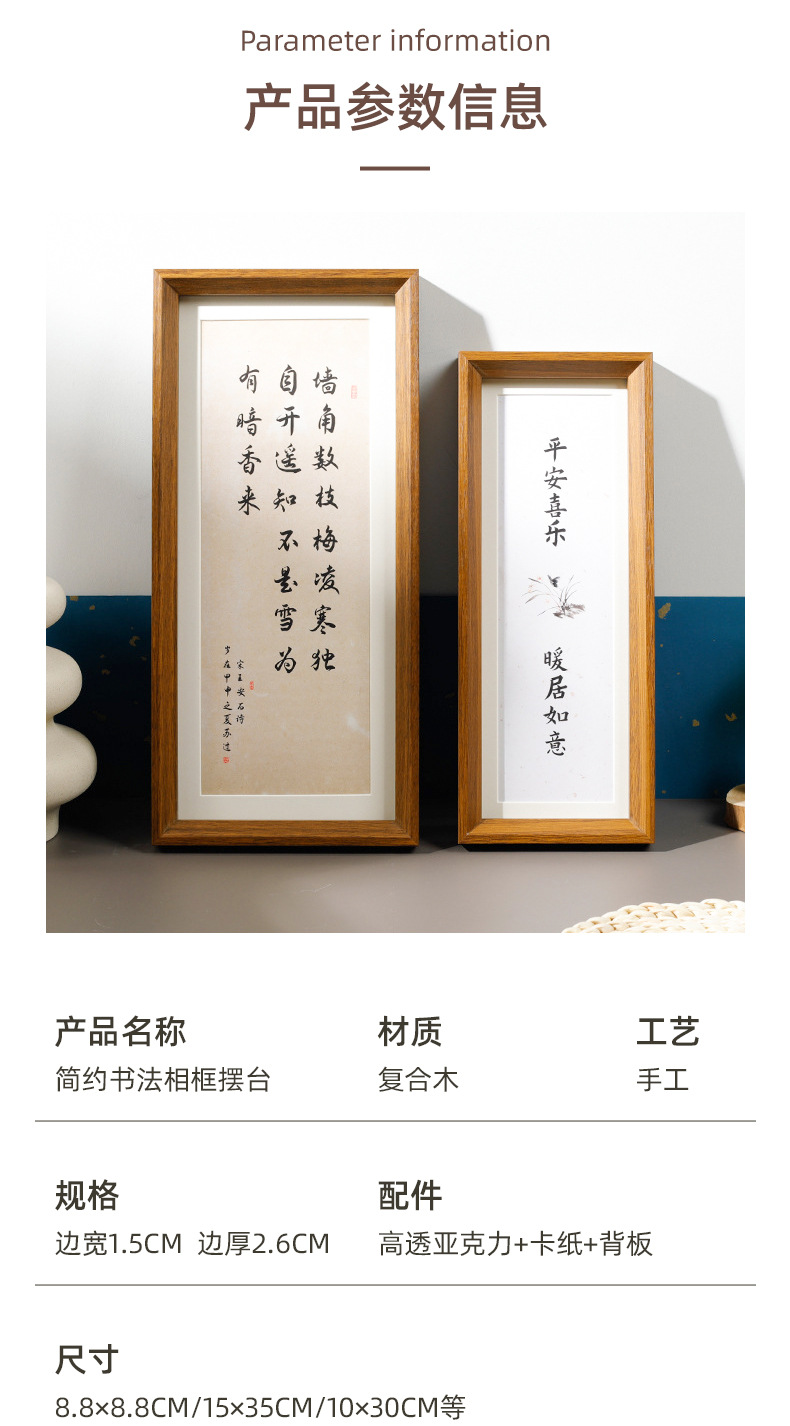 Parameter information
产品参数信息
墙角数枝梅凌寒独
自开遥知不是雪为
有暗香来
宋王安石诗
岁在甲申之夏苏过
平安喜乐
暖居如意
产品名称
材质
工艺
简约书法相框摆台
复合木
手工
规格
配件
边宽1.5CM 边厚2.6CM
高透亚克力+卡纸+背板
尺寸
8.8×8.8CM/15×35CM/10×30CM等